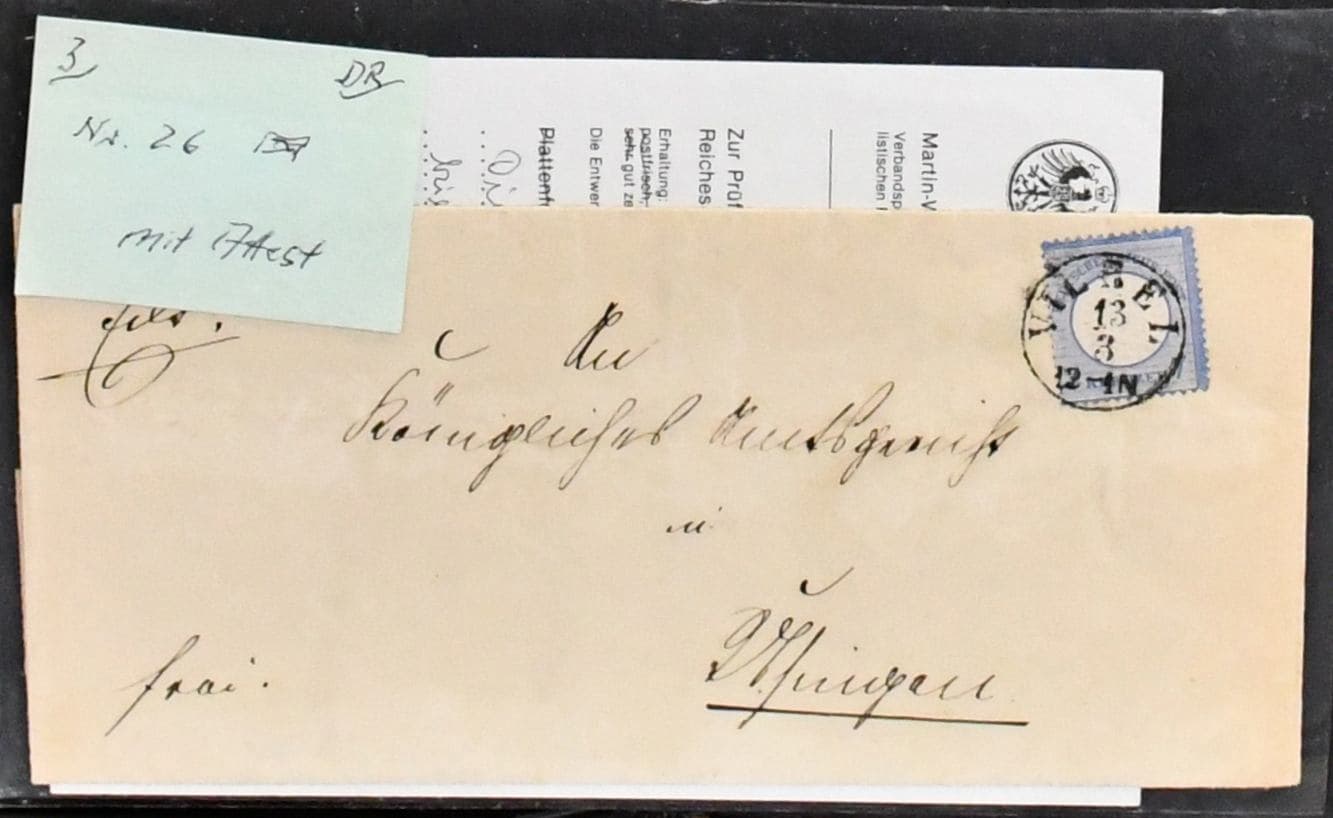 3 DR
Nr. 26
mit Attest
Martin-
Verbandsp
listischen
Zur Prüf
Reiches-
Erhaltung:
postfrisch,
sehr gut ze
Die Entwer
Plattenf
VILBEL
13
3
12-1N
An
Königliches Amtsgericht
in
Usingen
frei.